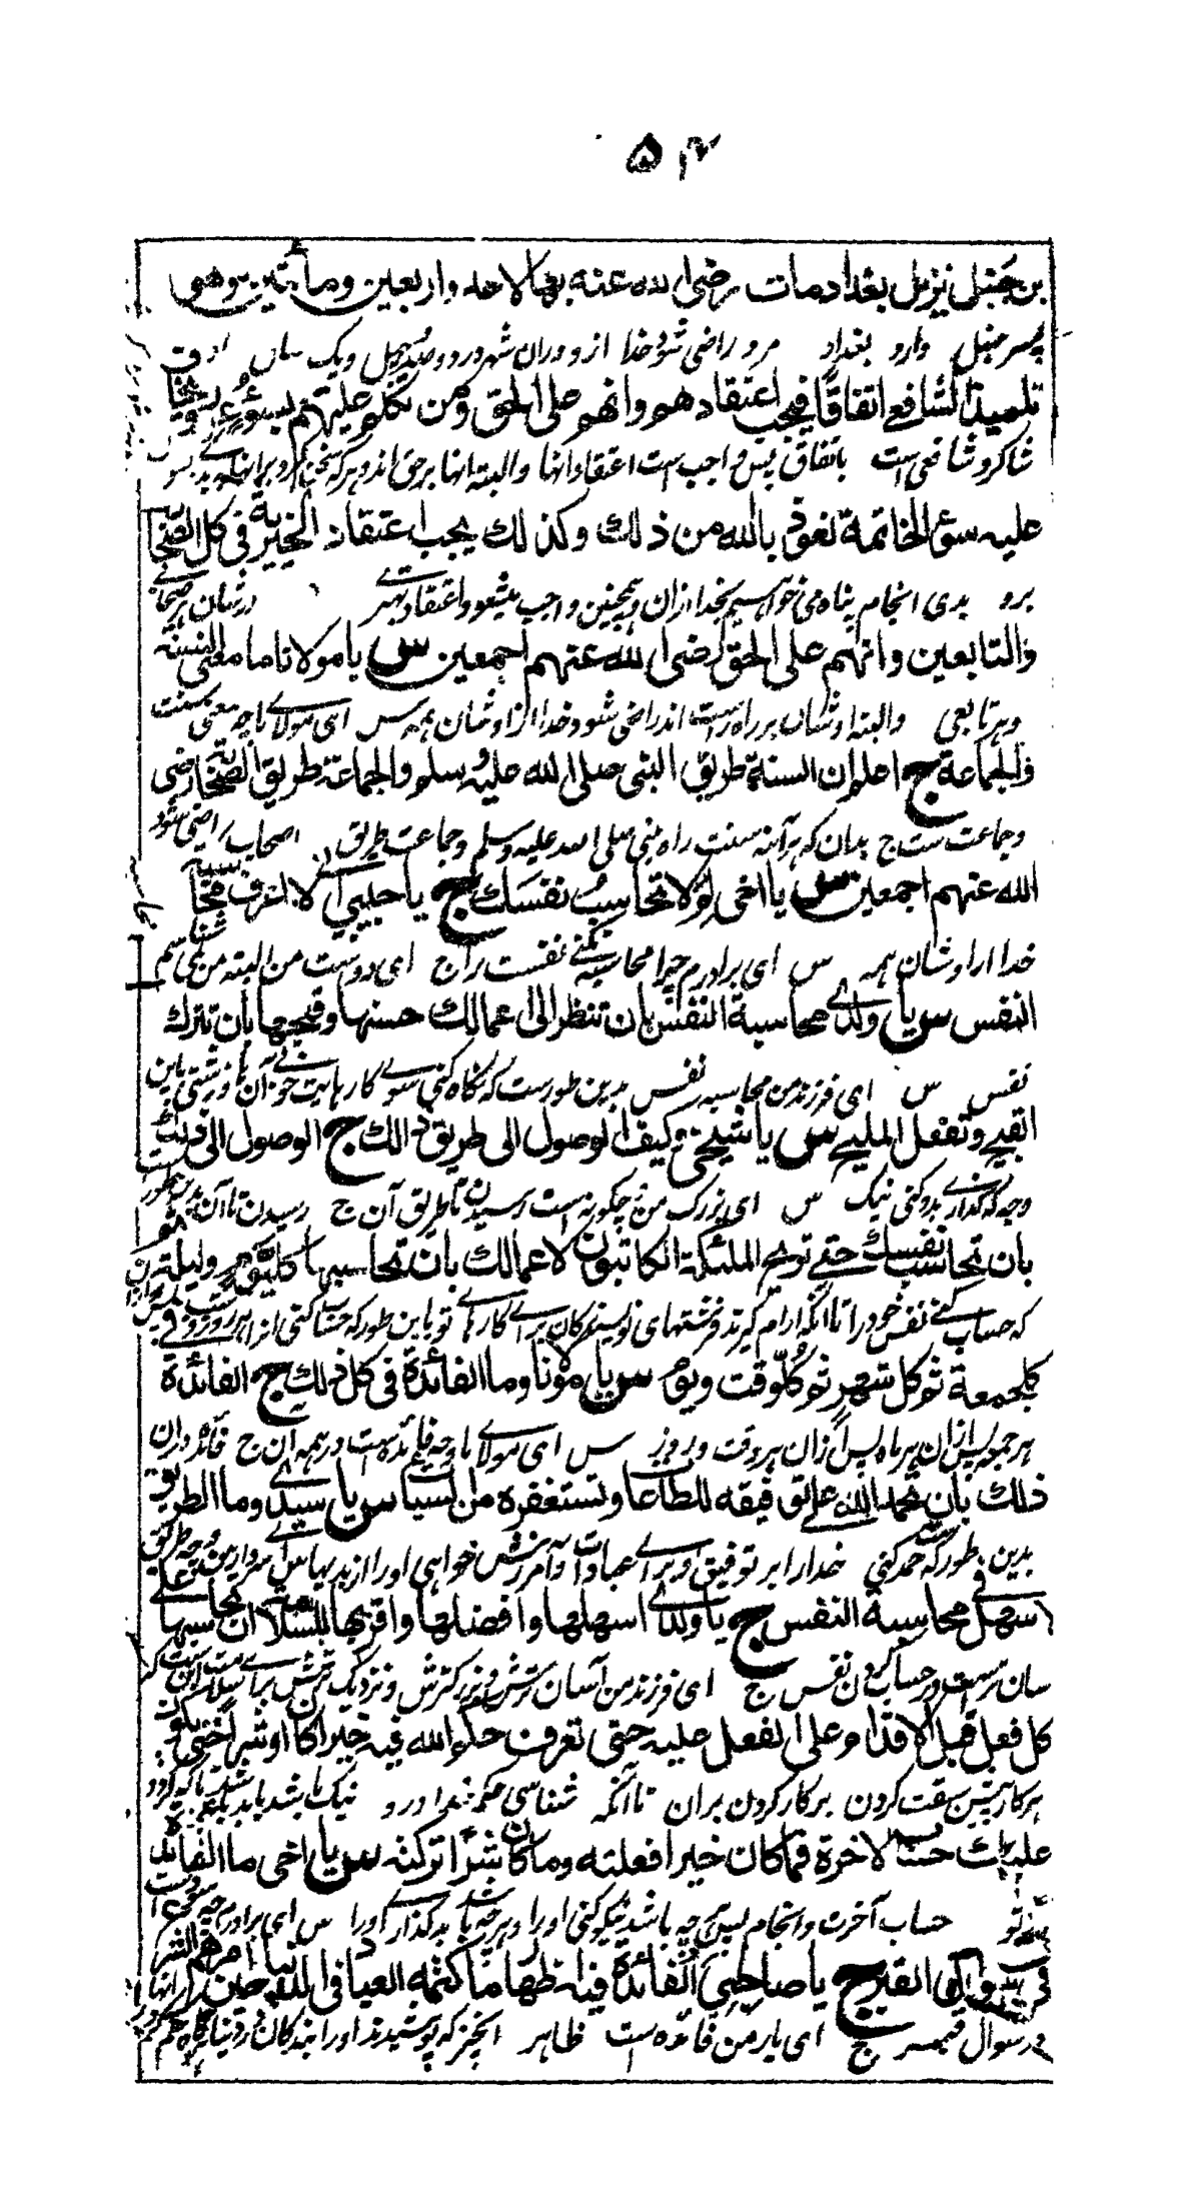 ۵۴
بن حنبل نزيل بغداد مات رضى الله عنه بها لاحد واربعين ومأتين وهو
پسر حنبل وارد بغداد مرد راضى شود خدا ازو دران شهر در دوصد چهل ويک سال
تلميذ الشافعى اتفاقا فيجب اعتقادهم وانهم على الحق ومن تكلم عليهم بسوء
شاگرد شافعى است باتفاق پس واجب ست اعتقاد انها والبته انها بر حق اند و هركه سخن كرد بر انها
عليه سوء الخاتمة نعوذ بالله من ذلك وكذلك يجب اعتقاد الخيرية فى كل الصحابة
برو بدى انجام پناه مى خواهيم بخدا ازان وهمچنين واجب ميشود اعتقاد بهترى در شان هر صحابى
والتابعين وانهم على الحق رضى الله عنهم اجمعين س يا مولانا ما معنى السنة
وهر تابعى والبته اوشان بر راه راست اند راضى شود خدا از اوشان همه س اى مولاى ما چه معنى سنت
والجماعة ج اعلم ان السنة طريق النبى صلى الله عليه وسلم والجماعة طريق الصحابة رضى
وجماعت ست ج بدان كه هر آئنه سنت راه نبى صلى الله عليه وسلم وجماعت طريق اصحاب راضى شود
الله عنهم اجمعين س يا اخى لم لا تحاسب نفسك ج يا حبيبى انى لا اعرف محاسبة
خدا از اوشان همه س اى برادرم چرا محاسبه نكنى نفست را ج اى دوست من البته من نمى شناسم
النفس س يا ولدى محاسبة النفس بان تنظر الى اعمالك حسنها وقبيحها بان تترك
نفس س اى فرزند من محاسبه نفس بدين طور ست كه نگاه كنى سوى كارهايت خوب آن وزشتى باين
القبيح وتفعل المليح س يا شيخى وكيف الوصول الى طريق ذلك ج الوصول الى ذلك
وجه كه گذارى بد وكنى نيک س اى بزرگ من چگونه است رسيدن تا طريق آن ج رسيدن تا آن بدين طور
بان تحاسب نفسك حتى تريح الملئكة الكاتبون لاعمالك بان تحاسبها كل يوم وليلة ثم
كه حساب كنى نفس خود را تا آنكه ارام گيرند فرشتهاى نويسندگان براى كارهاى تو باين طور كه حساب كنى انرا هر روز و شب
كل جمعة ثم كل شهر ثم كل وقت ويوم س يا مولانا وما الفائدة فى كل ذلك ج الفائدة فى
هر جمعه پس ازان هر ماه پس ازان هر وقت وروز س اى مولاى ما وچه فائده است در همه ان ج فائده دران
ذلك بان تحمد الله على توفيقه للطاعات وتستغفره من السيآت س يا سيدى وما الطريق
بدين طور كه حمد كنى خدا را بر توفيق او براى عبادات وآمرزش خواهى او را از بديها س اى سردار من وچه طريق
اسهل فى محاسبة النفس ج يا ولدى اسهلها وافضلها واقربها للسلامة ان تحاسبها على
سان ترست در حساب كردن نفس ج اى فرزند من آسان ترش وبزرگترش ونزديک ترش براى سلامت اين ست كه
كل فعل قبل الاقدام على الفعل عليه حتى تعرف حكم الله فيه خيرا كان او شرا حتى يكون
هر كار پيش سبقت كردن بر كار كردن بران تا آنكه شناسى حكم خدا درو نيک باشد يا بد
عليك حساب الاخرة فما كان خيرا فعلته وما كان شرا تركته س يا اخى ما الفائدة
حساب آخرت وانجام پس هر چه باشد نيكو كنى او را وهر چه باشد بد گذارى او را س اى برادرم چه
القبر ج يا صاحبى الفائدة فيه اظهار ما كتمه العباد فى الدنيا
در سوال قبر ج اى يار من فائده است ظاهر انچيز كه پوشيدند او را بندگان در دنيا